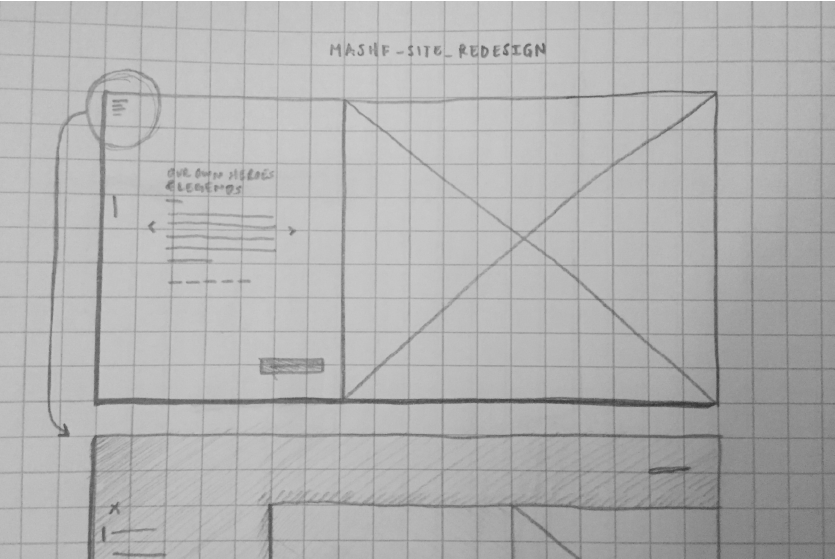 MASHF-SITE_REDESIGN
OUR OWN HEROES
& LEGENDS
X